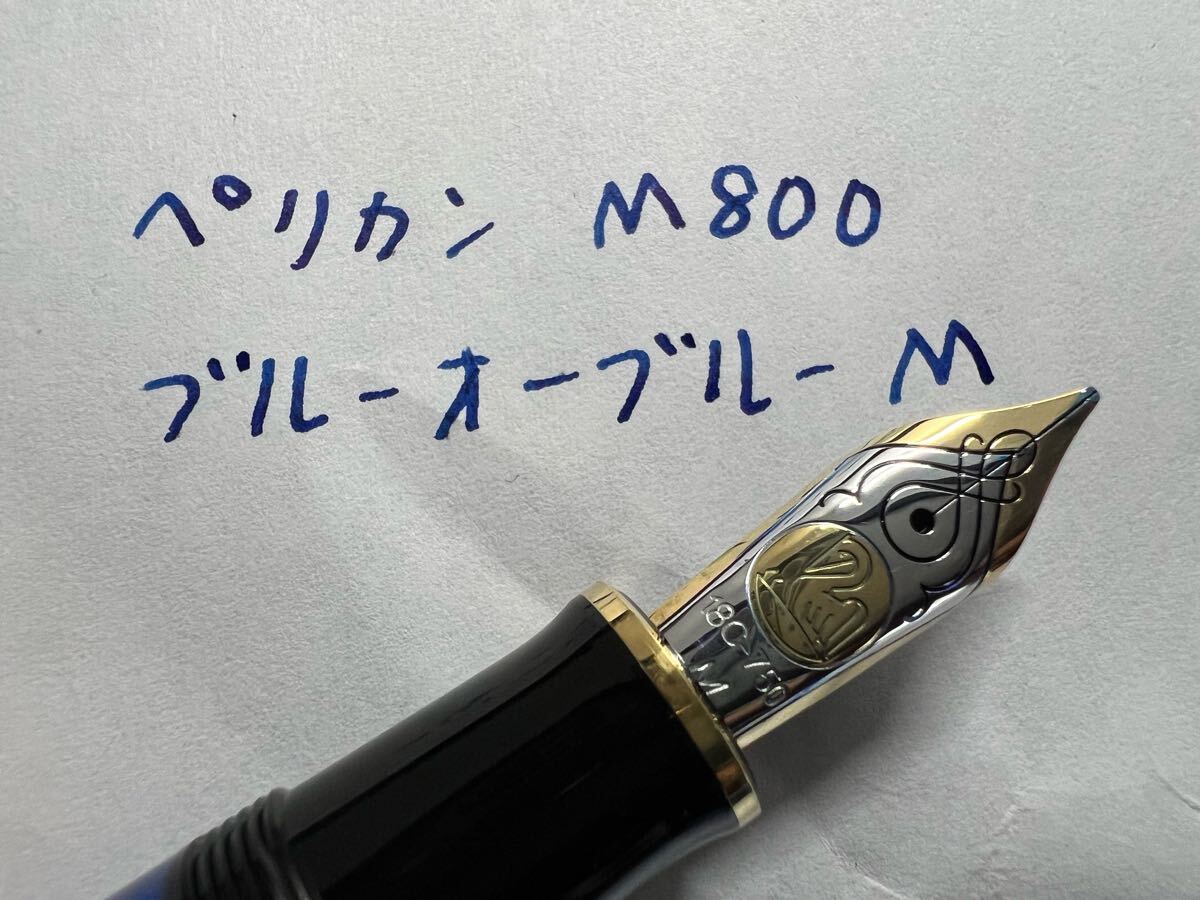 ペリカン M800
ブルーオーブルー M
18C-750
M